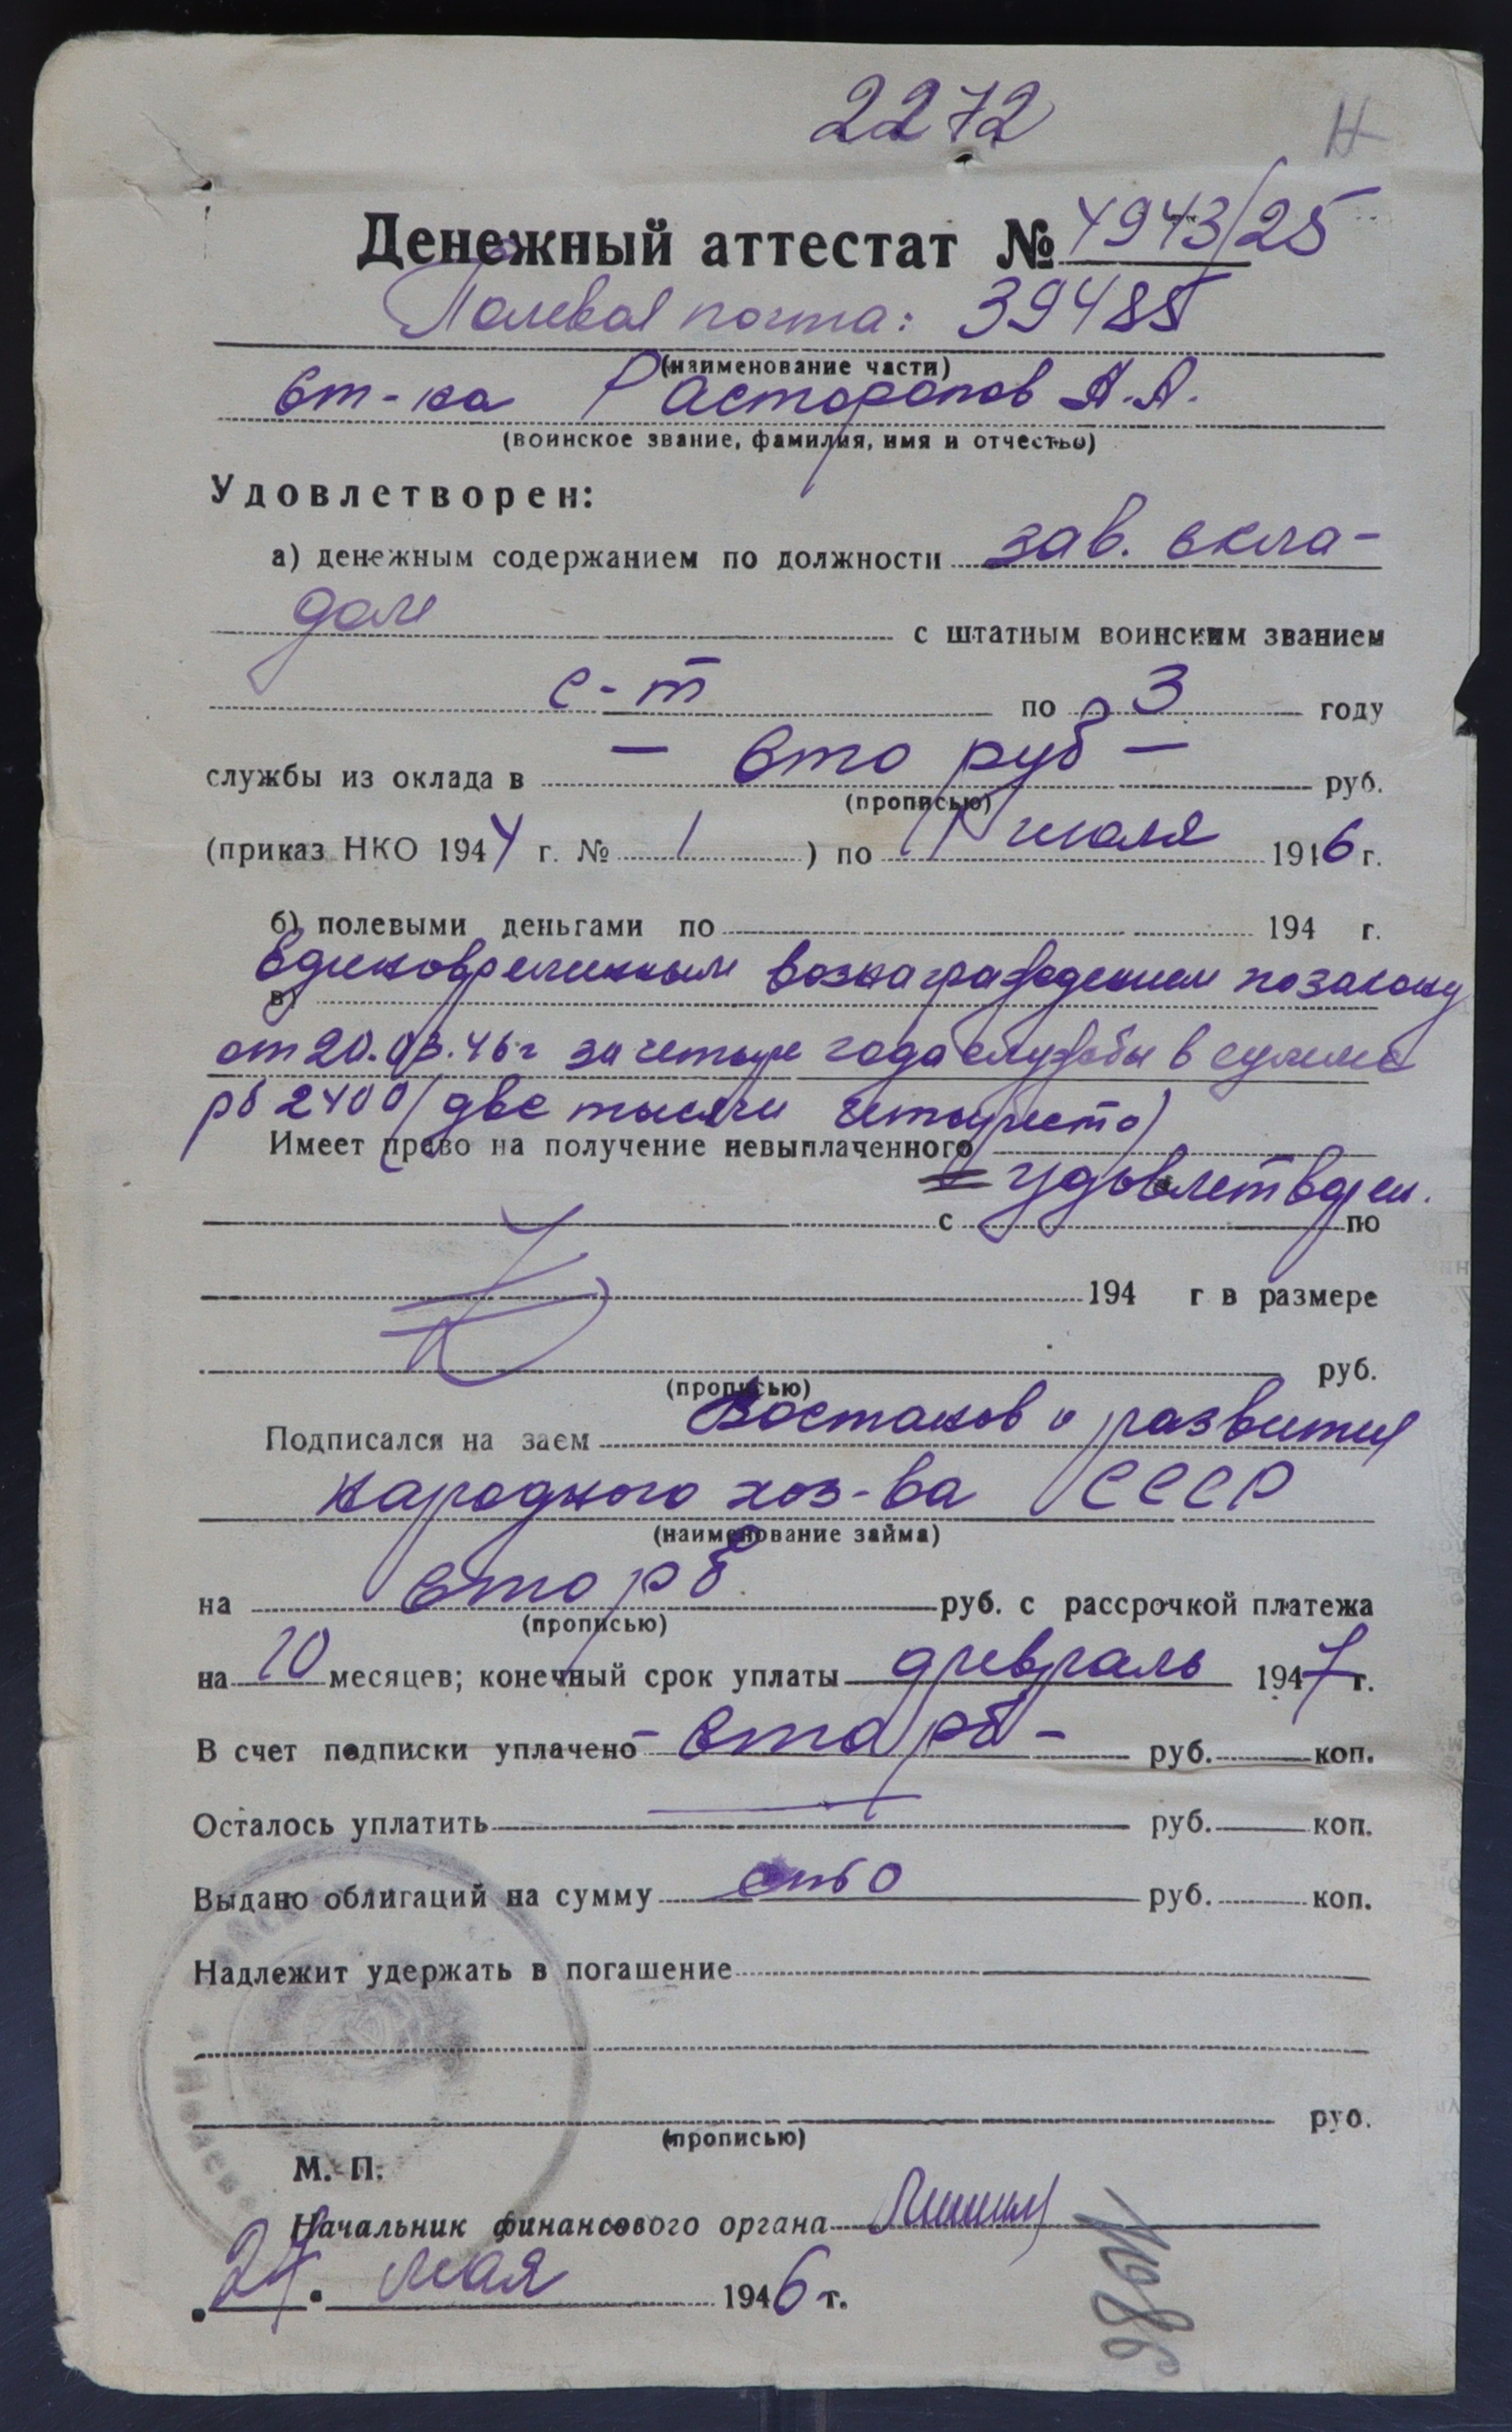 2272
Н
Денежный аттестат № 4943/25
Полевая почта: 39488
(наименование части)
ст-на Расторопов А.А.
(воинское звание, фамилия, имя и отчество)
Удовлетворен:
а) денежным содержанием по должности зав. скла-
дом с штатным воинским званием
с-т по 3 году
службы из оклада в — сто руб — руб.
(прописью)
(приказ НКО 1944 г. № 1 ) по 1 июля 1946 г.
б) полевыми деньгами по 194 г.
в) единовременным вознаграждением по закону
от 20.03.46 г за четыре года службы в сумме
рб 2400 (две тысячи четыреста)
Имеет право на получение невыплаченного
удовлетворен.
с по
194 г в размере
руб.
(прописью)
Подписался на заем Востанов и развития
народного хоз-ва СССР
(наименование займа)
на сто рб руб. с рассрочкой платежа
(прописью)
на 10 месяцев; конечный срок уплаты февраль 1947 г.
В счет подписки уплачено - сто рб - руб. коп.
Осталось уплатить руб. коп.
Выдано облигаций на сумму сто руб. коп.
Надлежит удержать в погашение
руб.
(прописью)
М. П.
Начальник финансового органа
24 мая 1946 г.